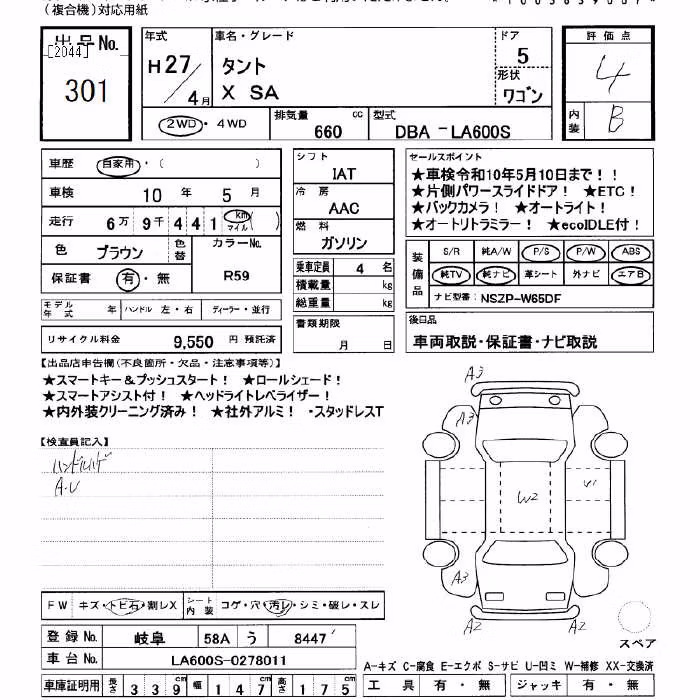 (複合機)対応用紙
出品No.
[2044]
301
年式
H27/4月
車名・グレード
タント
X SA
ドア
5
形状
ワゴン
評価点
4
内装
B
2WD・4WD
排気量 660 cc
型式 DBA-LA600S
車歴 自家用・( )
車検 10年 5月
走行 6万9千441 km マイル ( )
色 ブラウン
色替
カラーNo.
R59
保証書 有・無
モデル年式 年
ハンドル 左・右
ディーラー・並行
リサイクル料金 9,550円 預託済
シフト
IAT
冷房
AAC
燃料
ガソリン
乗車定員 4 名
積載量 kg
総重量 kg
書類期限
月 日
セールスポイント
★車検令和10年5月10日まで!!
★片側パワースライドドア! ★ETC!
★バックカメラ! ★オートライト!
★オートリトラミラー! ★ecoIDLE付!
装備品
S/R 純A/W P/S P/W ABS
純TV 純ナビ 革シート 外ナビ エアB
ナビ型番: NSZP-W65DF
後日品
車両取説・保証書・ナビ取説
【出品店申告欄(不良箇所・欠品・注意事項等)】
★スマートキー&プッシュスタート! ★ロールシェード!
★スマートアシスト付! ★ヘッドライトレベライザー!
★内外装クリーニング済み! ★社外アルミ! ・スタッドレスT
【検査員記入】
A.U
A3
A3
W2
U1
A3
A2
A2
スペア
FW キズ・トビ石・割レX
シート内装 コゲ・穴・汚レ・シミ・破レ・スレ
登録No. 岐阜 58A う 8447
車台No. LA600S-0278011
車庫証明用 長さ 339 幅 147 高さ 175
A-キズ C-腐食 E-エクボ S-サビ U-凹ミ W-補修 XX-交換済
工具 有・無 ジャッキ 有・無